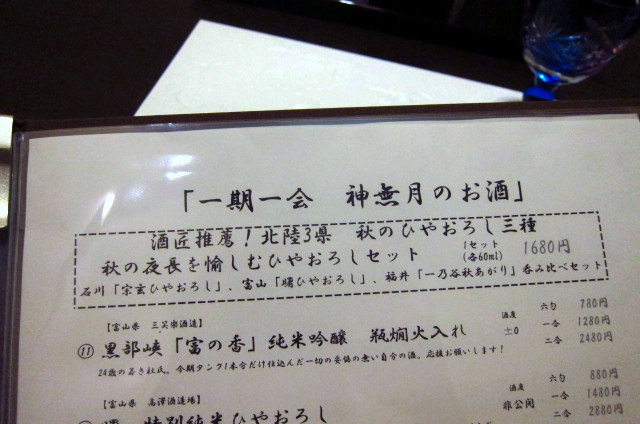 「一期一会 神無月のお酒」
酒匠推薦！北陸3県 秋のひやおろし三種
秋の夜長を愉しむひやおろしセット 1セット (各60ml) 1680円
石川「宗玄ひやおろし」、富山「曙ひやおろし」、福井「一乃谷秋あがり」呑み比べセット
【富山県 三笑楽酒造】
⑪ 黒部峡「富の香」純米吟醸 瓶燗火入れ
24歳の若き杜氏。今期タンク1本分だけ仕込んだ一切の妥協の無い自分の酒。応援お願いします！
酒度 ±0
六勺 780円
一合 1280円
二合 2480円
【富山県 高澤酒造場】
曙 特別純米ひやおろし
酒度 非公開
六勺 880円
一合 1480円
二合 2880円